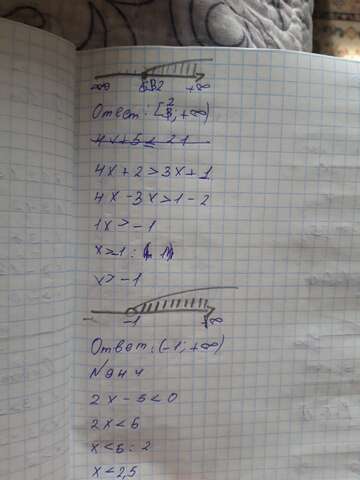 -∞ +∞
Ответ: [2/3; +∞)
4x+5≤21
4x+2>3x+1
4x-3x>1-2
1x>-1
x>1:
x>-1
-1 +∞
Ответ: (-1; +∞)
№944
2x-5<0
2x<5
x<5:2
x<2,5